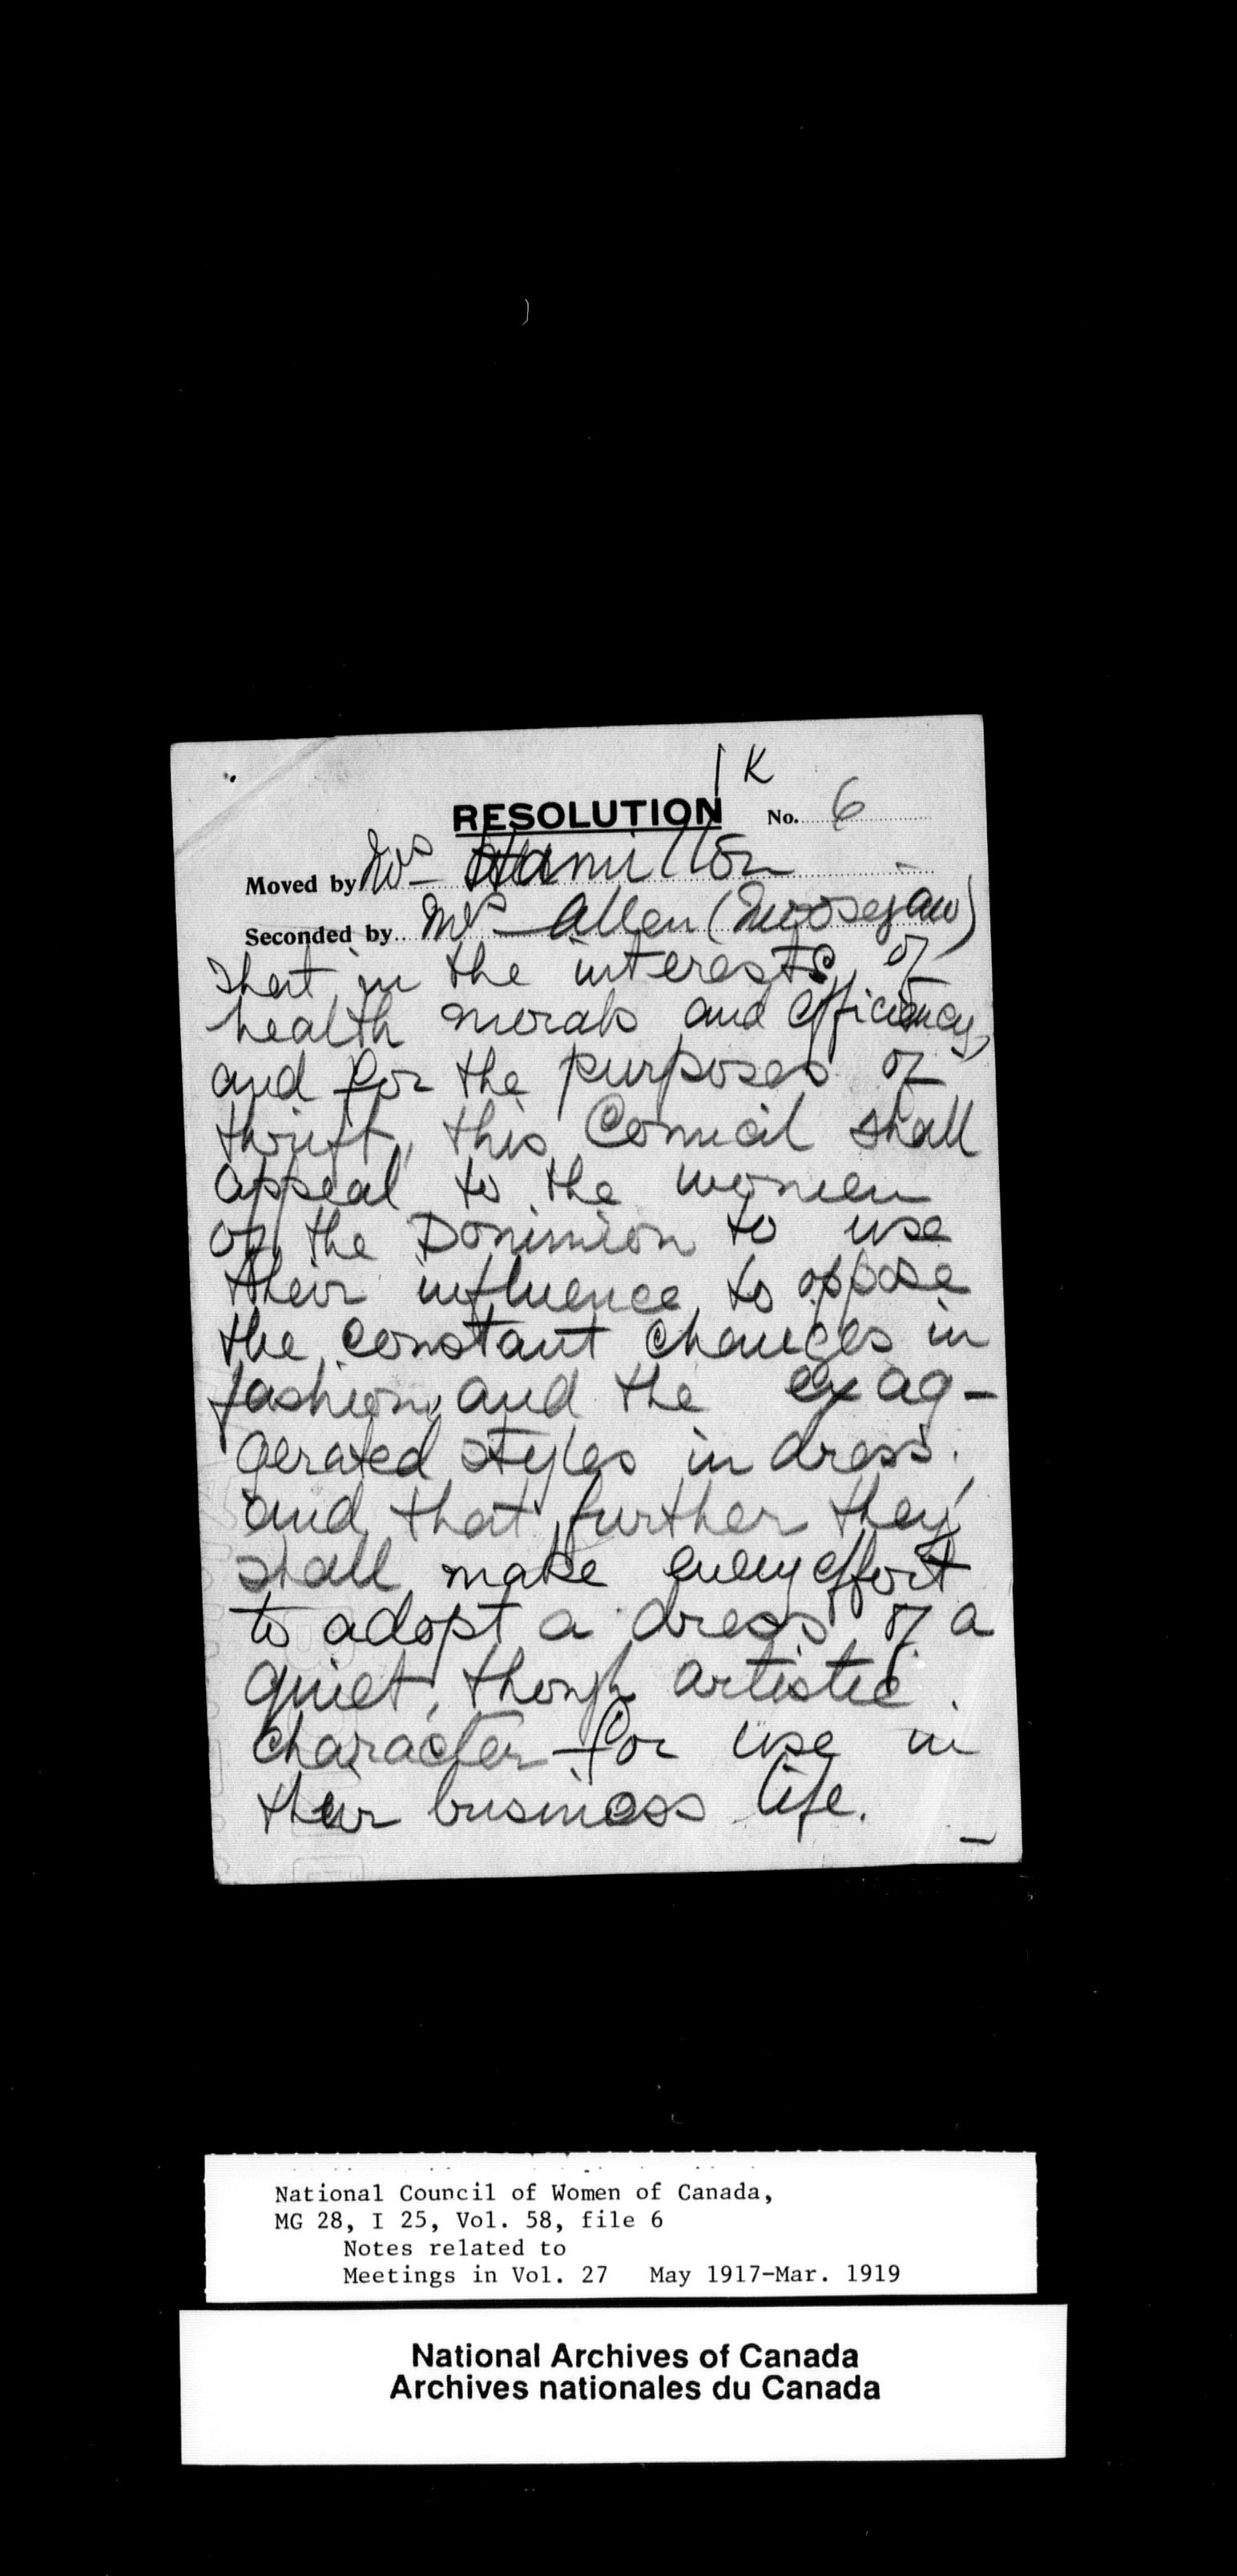 1 K
RESOLUTION No. 6
Moved by Mrs Hamilton
Seconded by Mrs Allen (Moosejaw)
That in the interests of
health morals and efficiency,
and for the purposes of
thrift, this Council shall
appeal to the women
of the Dominion to use
their influence to oppose
the constant changes in
fashion and the exag-
gerated styles in dress.
and that further they
shall make every effort
to adopt a dress of a
quiet, though artistic
character for use in
their business life.
National Council of Women of Canada,
MG 28, I 25, Vol. 58, file 6
Notes related to
Meetings in Vol. 27 May 1917-Mar. 1919
National Archives of Canada
Archives nationales du Canada